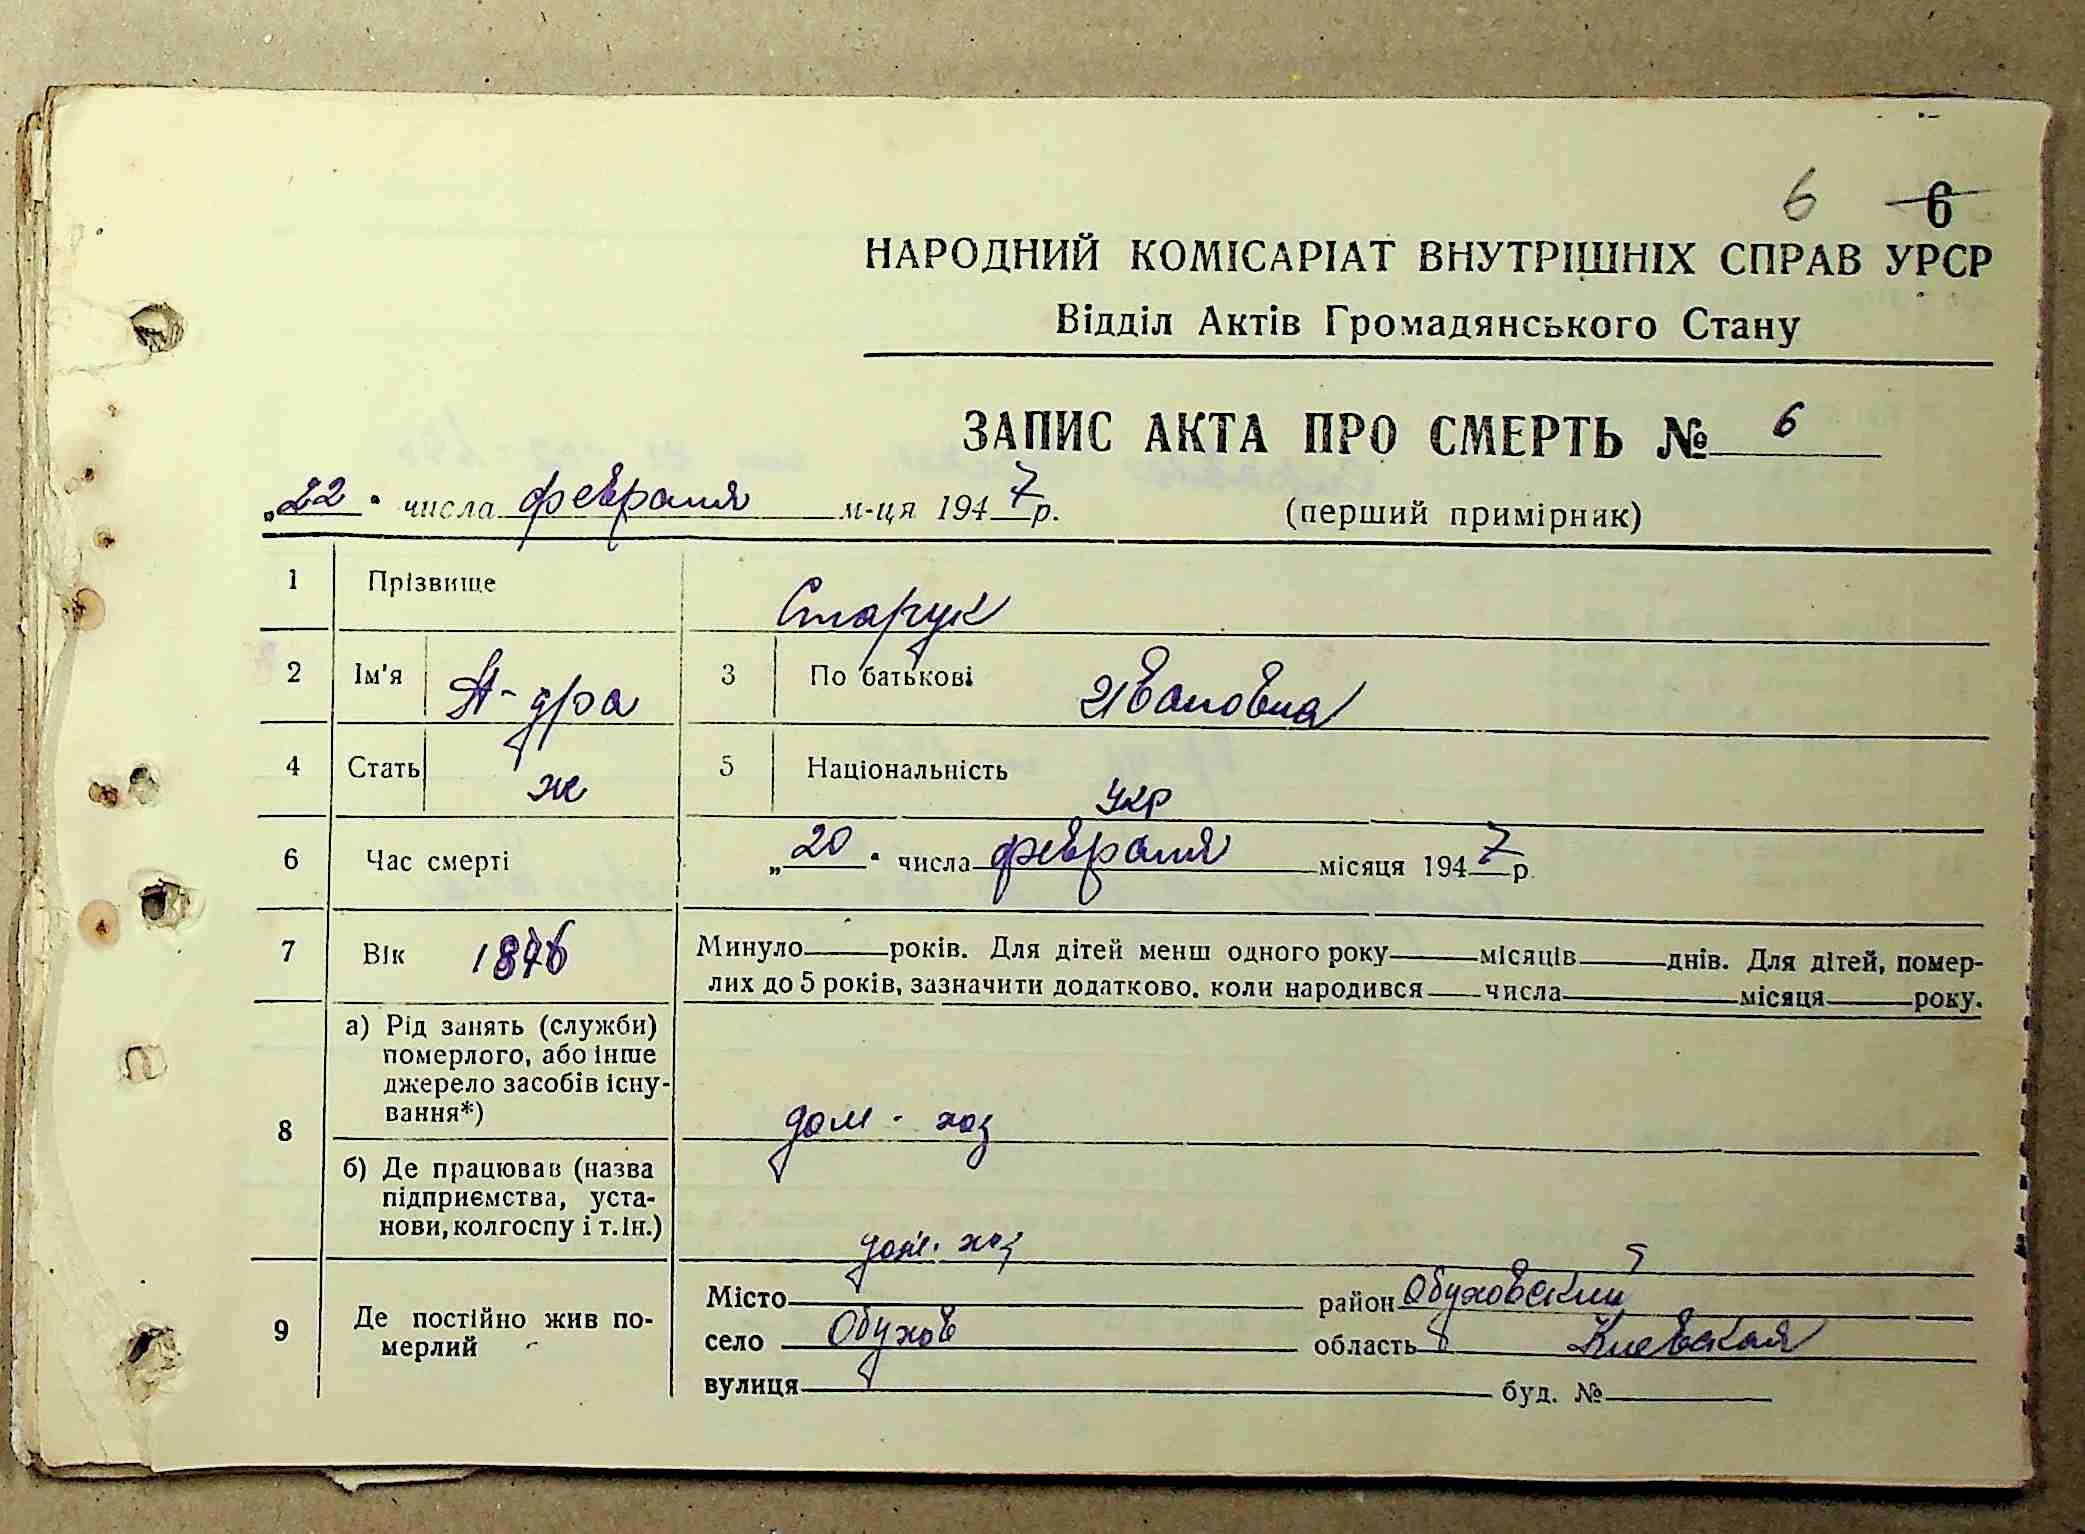 6 6
НАРОДНИЙ КОМІСАРІАТ ВНУТРІШНІХ СПРАВ УРСР
Відділ Актів Громадянського Стану
ЗАПИС АКТА ПРО СМЕРТЬ № 6
„22" числа февраля м-ця 1947 р. (перший примірник)
1 Прізвище Старук
2 Ім'я А-дра 3 По батькові Ивановна
4 Стать ж 5 Національність укр
6 Час смерті „20" числа февраля місяця 1947 р.
7 Вік 1876 Минуло років. Для дітей менш одного року місяців днів. Для дітей, помер-
лих до 5 років, зазначити додатково. коли народився числа місяця року.
8 а) Рід занять (служби)
померлого, або інше
джерело засобів існу-
вання*) дом - хоз
б) Де працював (назва
підприємства, уста-
нови, колгоспу і т.ін.) дом. хоз
9 Де постійно жив по-
мерлий
Місто район Обуховский
село Обухов область Киевская
вулиця буд. №